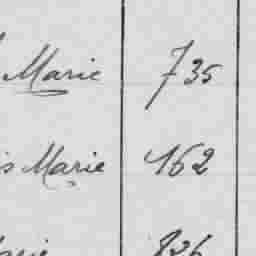 Marie 735
is Marie 162